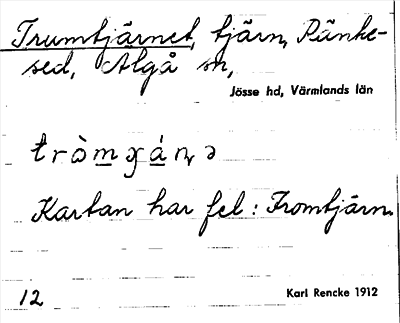 Trumtjärnet, tjärn, Ränke-
sed, Älgå sn,
Jösse hd, Värmlands län
Kartan har fel: Fromtjärn.
12
Karl Rencke 1912